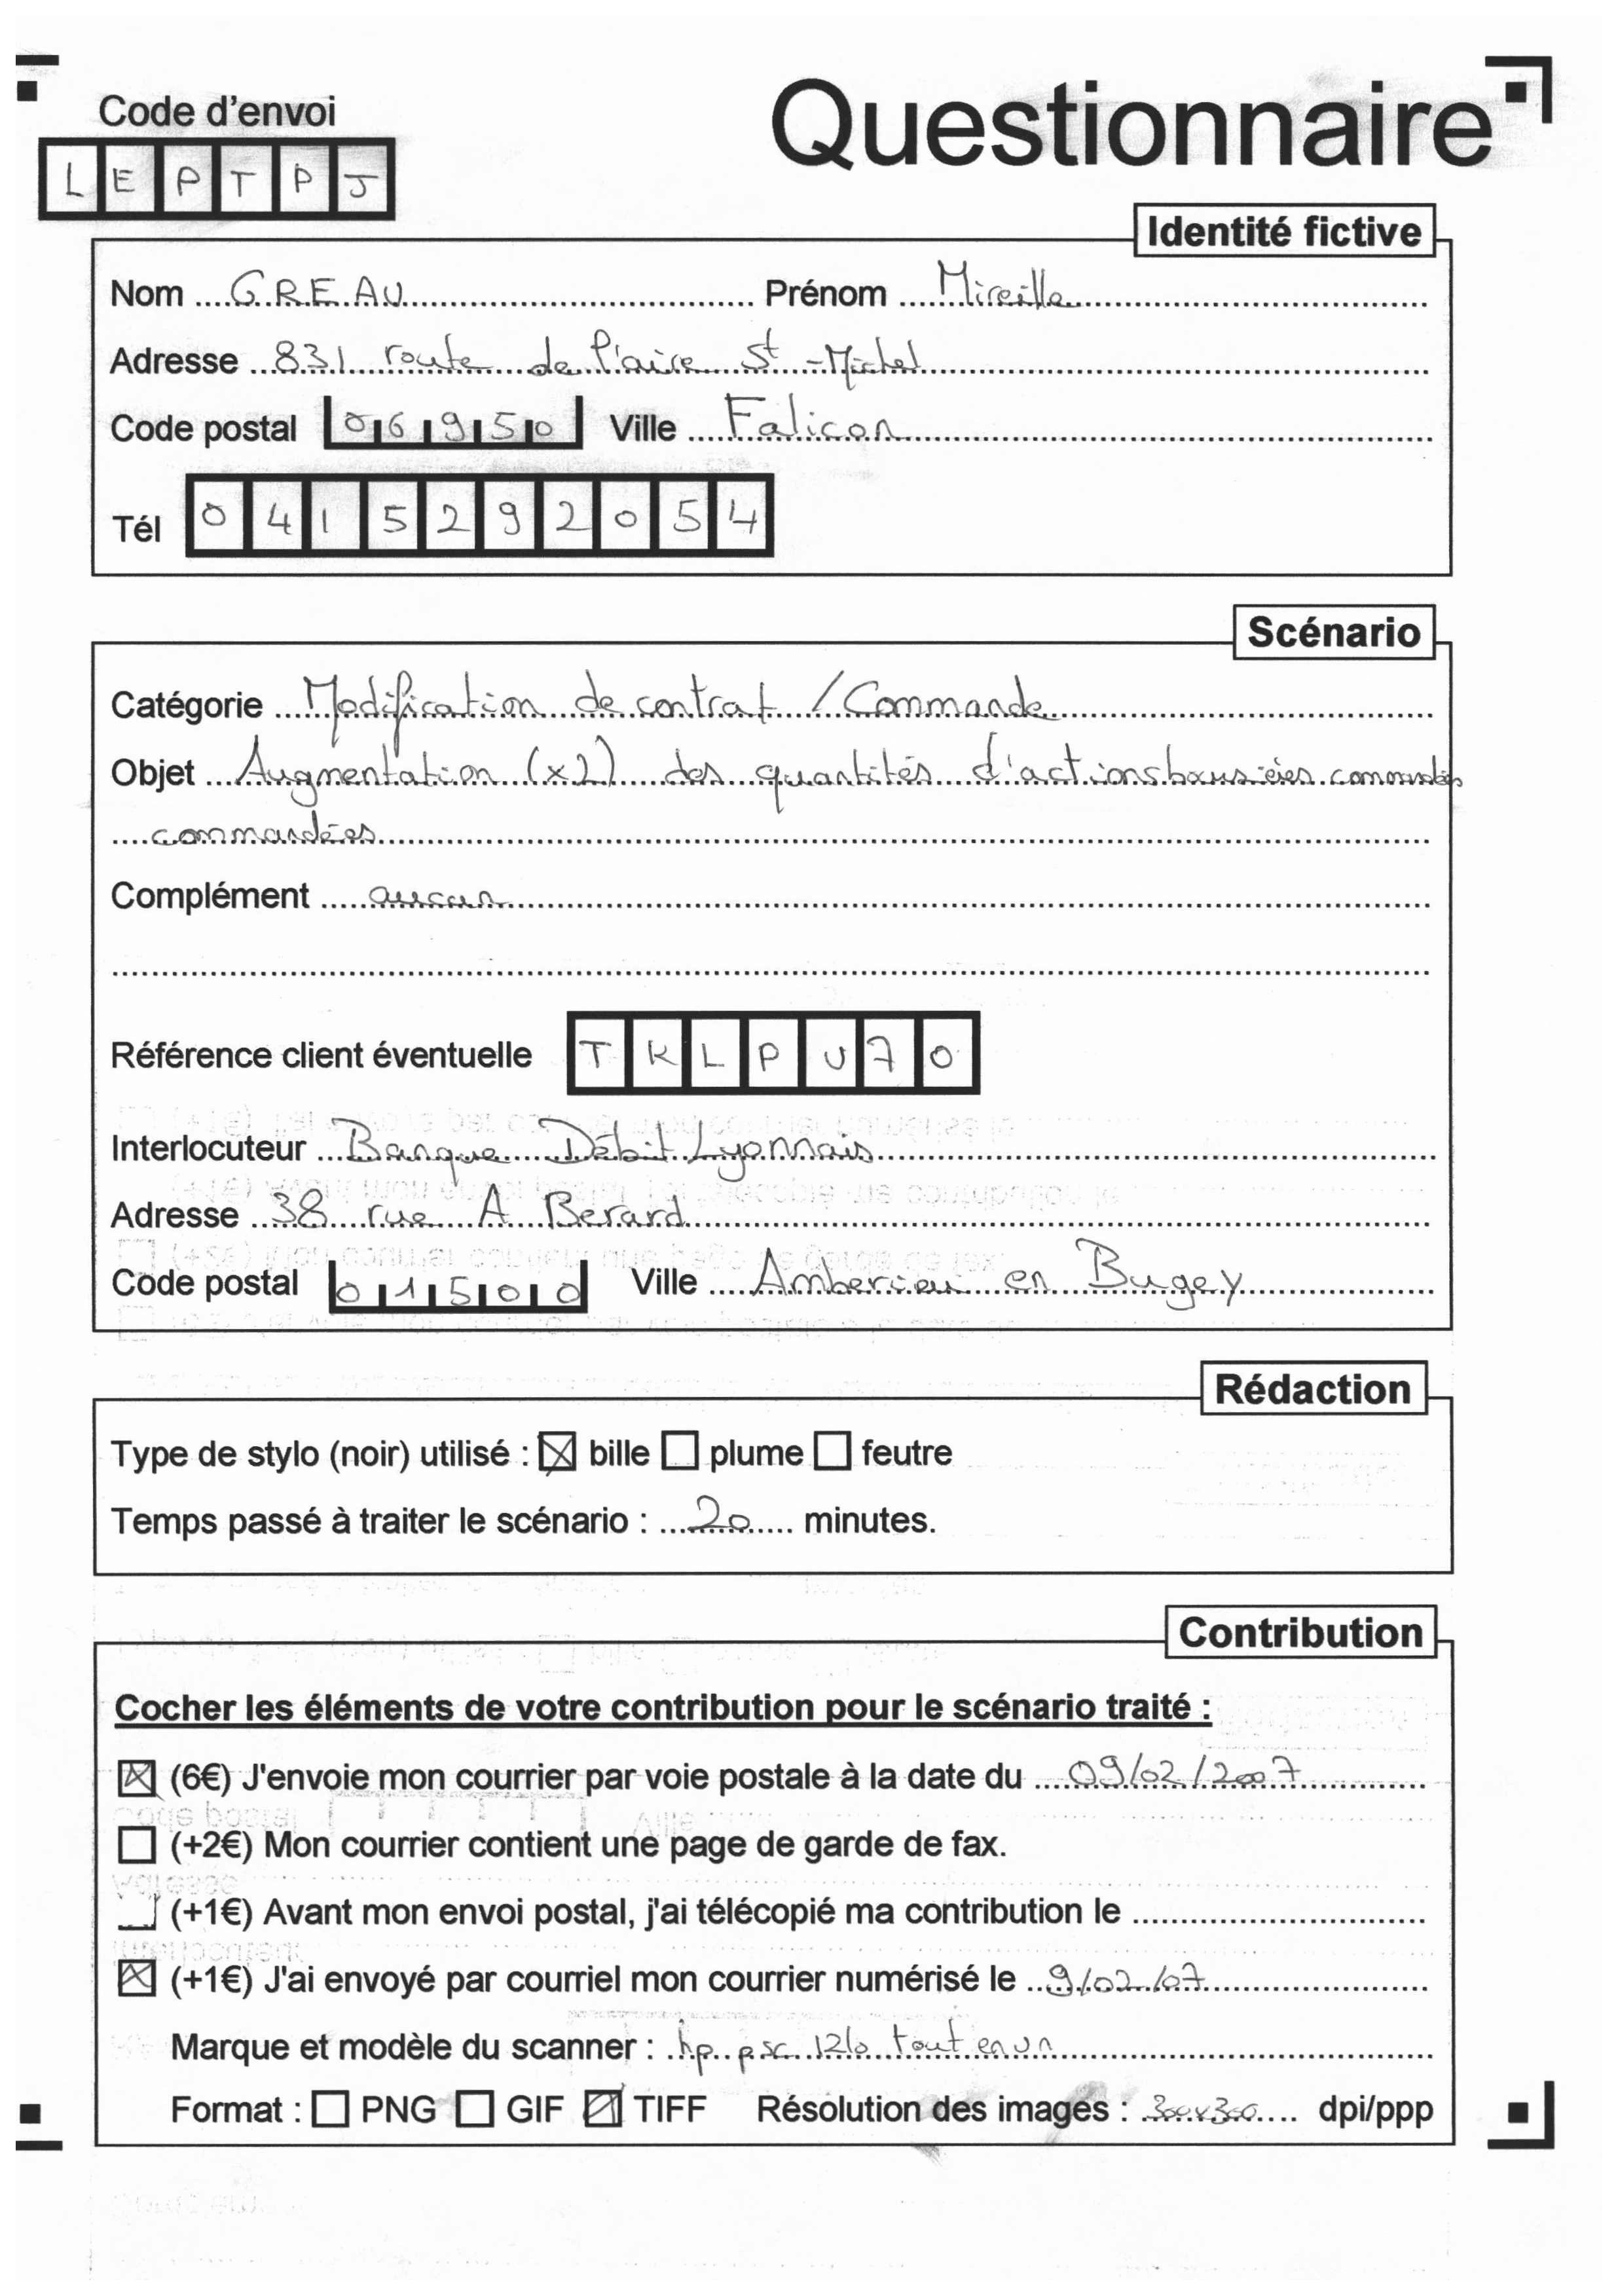 Questionnaire
Code d'envoi
L E P T P J
Identité fictive
Nom GREAU Prénom Mireille
Adresse 831 route de l'aire St-Michel
Code postal 06950 Ville Falicon
Tél 0415292054
Scénario
Catégorie Modification de contrat / Commande
Objet Augmentation (x2) des quantités d'actions boursières commandées
commandées
Complément aucun
Référence client éventuelle TKLPU70
Interlocuteur Banque Débit Lyonnais
Adresse 38 rue A Berard
Code postal 01500 Ville Amberieu en Bugey
Rédaction
Type de stylo (noir) utilisé : ☒ bille ☐ plume ☐ feutre
Temps passé à traiter le scénario : 20 minutes.
Contribution
Cocher les éléments de votre contribution pour le scénario traité :
☒ (6€) J'envoie mon courrier par voie postale à la date du 09/02/2007
☐ (+2€) Mon courrier contient une page de garde de fax.
☐ (+1€) Avant mon envoi postal, j'ai télécopié ma contribution le
☒ (+1€) J'ai envoyé par courriel mon courrier numérisé le 9/02/07
Marque et modèle du scanner : hp psc 1210 tout en un
Format : ☐ PNG ☐ GIF ☒ TIFF Résolution des images : 300x300 dpi/ppp